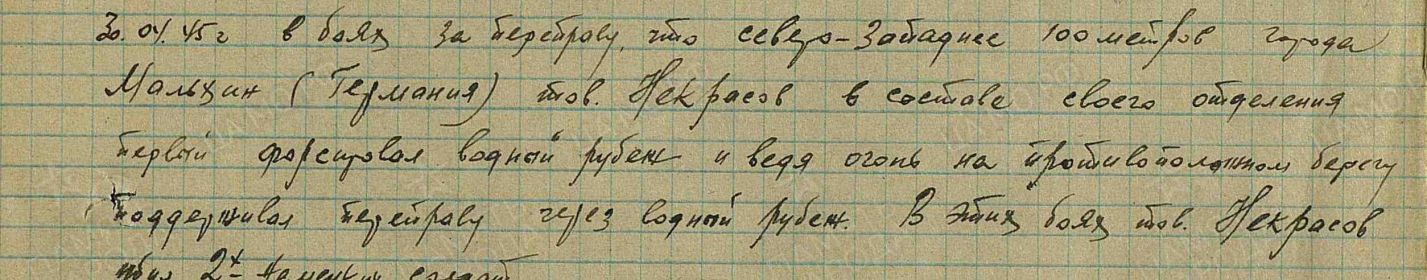 30.04.45г в боях за переправу, что северо-западнее 100 метров города
Мальхин (Германия) тов. Некрасов в составе своего отделения
первый форсировал водный рубеж и ведя огонь на противоположном берегу
поддерживал переправу через водный рубеж. В этих боях тов. Некрасов
убил 2х немецких солдат